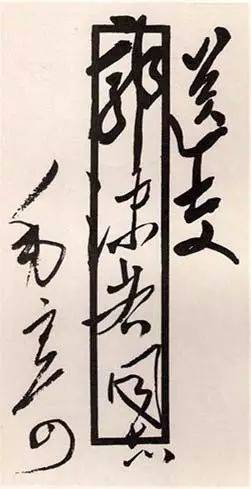 送交
郭沫若同志
毛寄